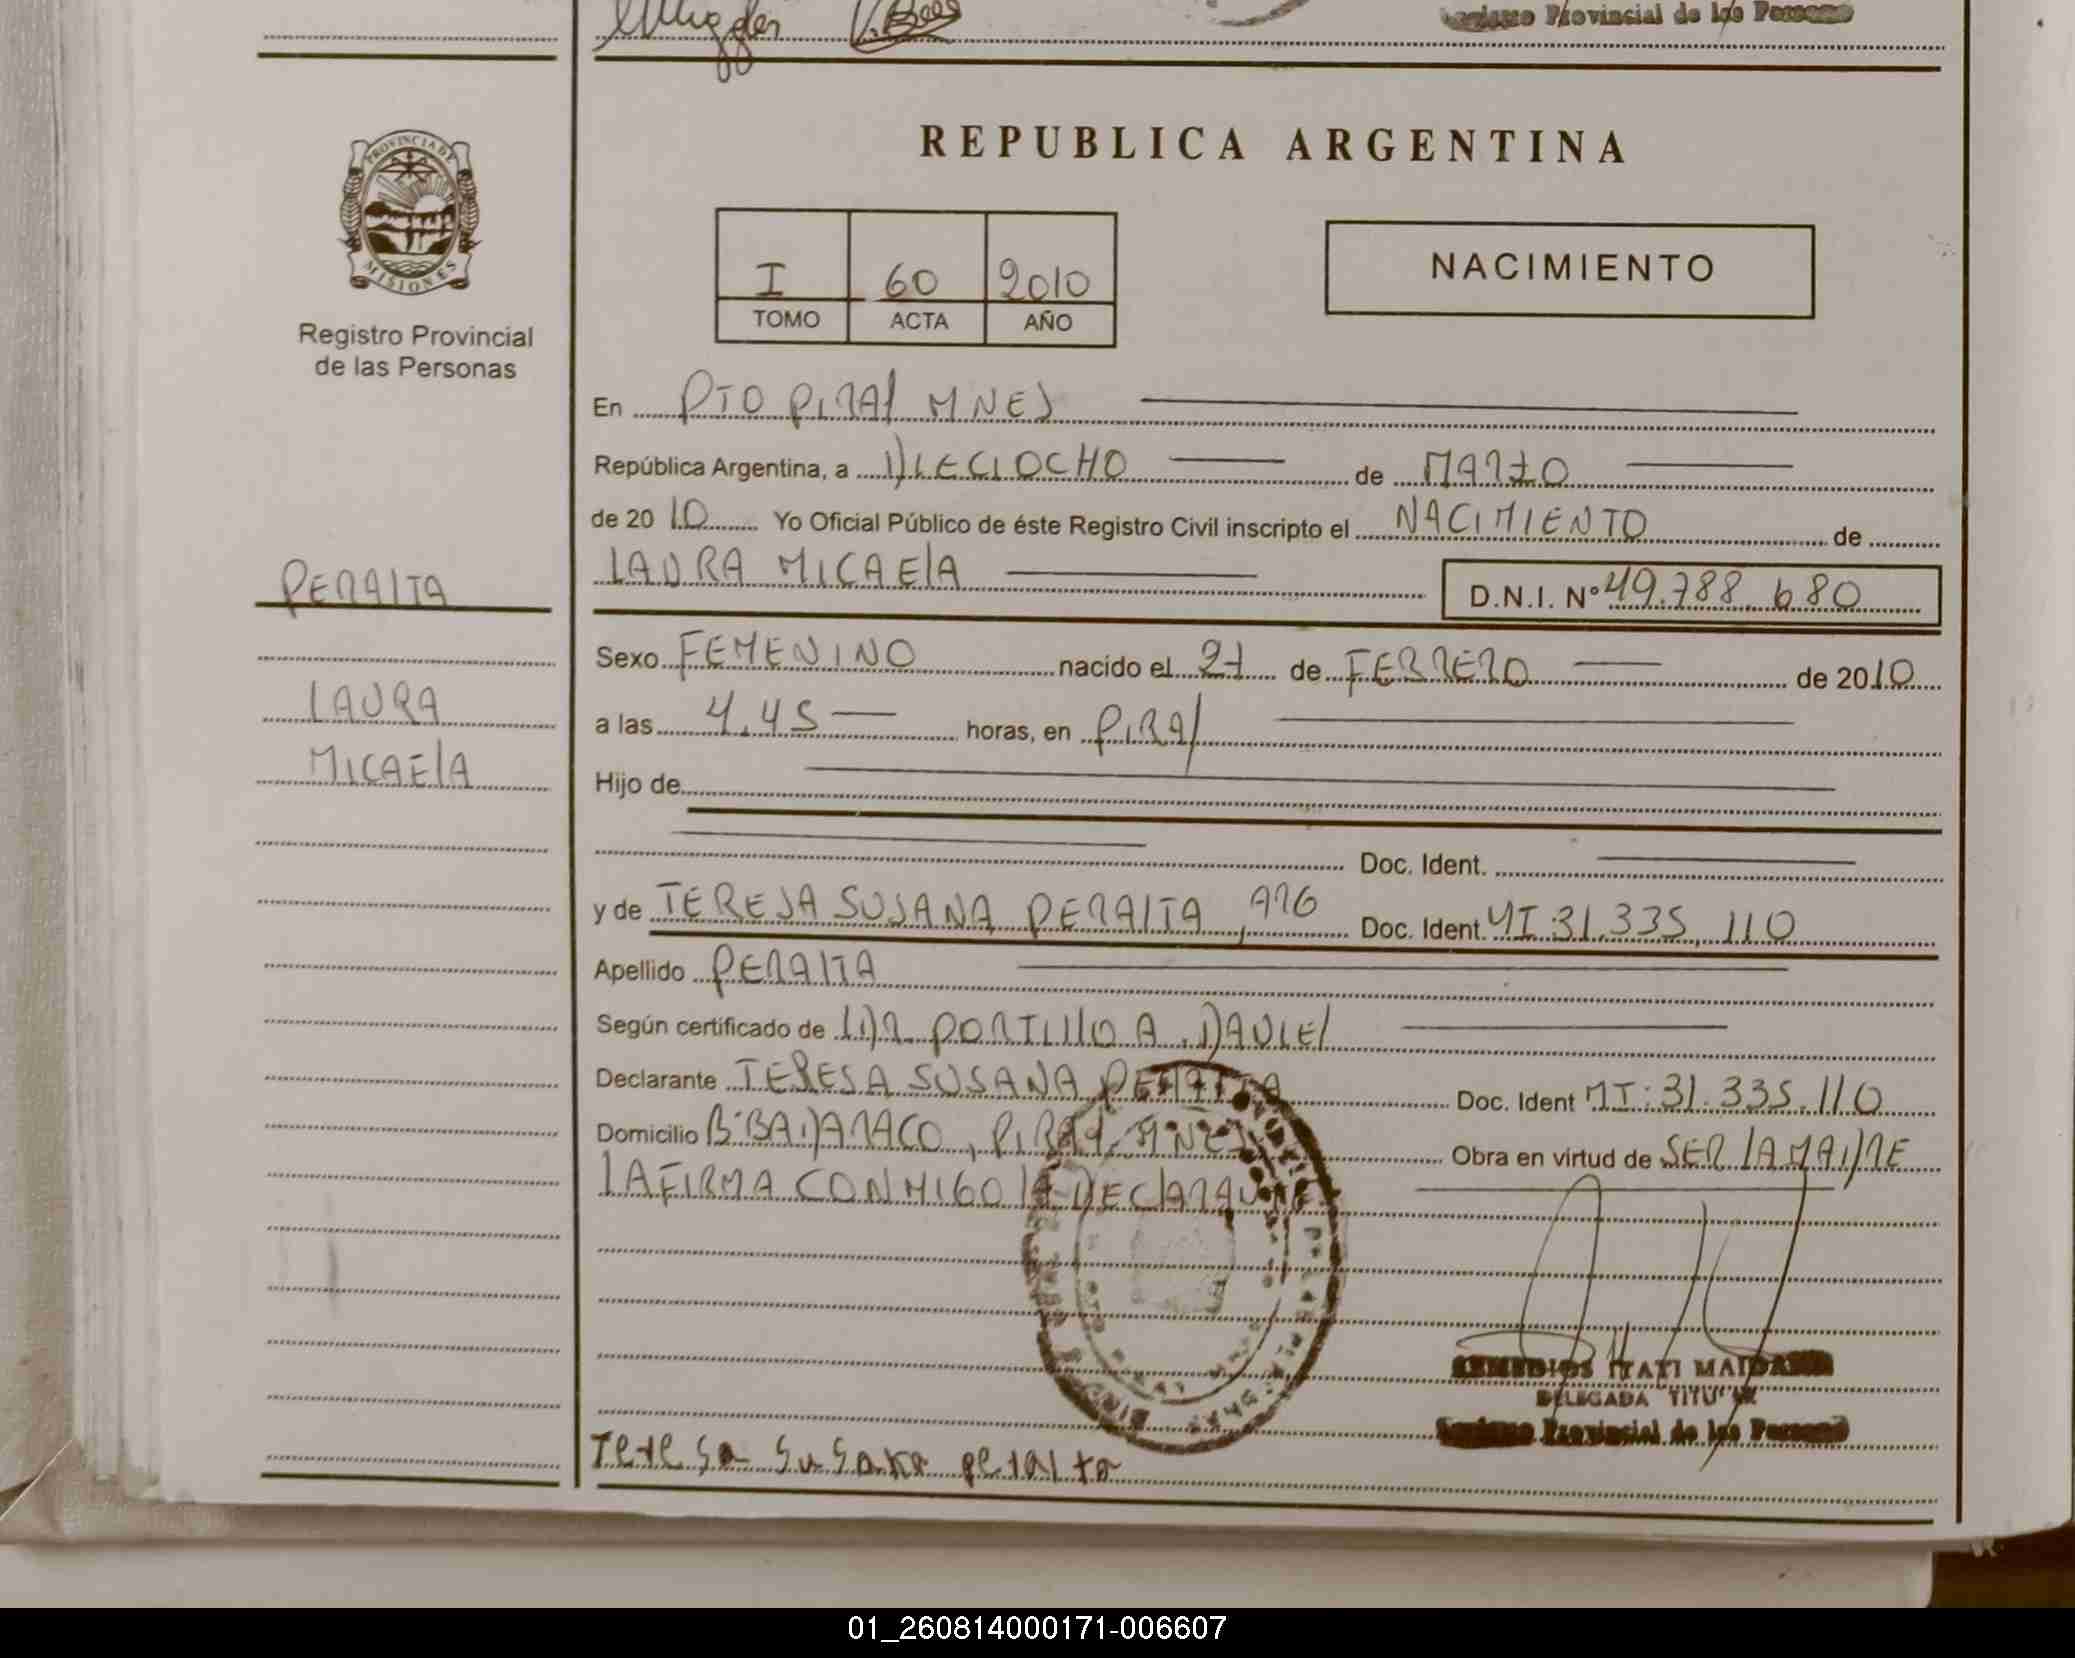 Provincial de las Personas
REPUBLICA ARGENTINA
PROVINCIA DE
MISIONES
Registro Provincial
de las Personas
I 60 2010
TOMO ACTA AÑO
NACIMIENTO
En PTO PIRAY MNES
República Argentina, a DIECIOCHO de MARZO
de 20 10 Yo Oficial Público de éste Registro Civil inscripto el NACIMIENTO de
PERALTA
LAURA MICAELA D.N.I. Nº 49.788.680
Sexo FEMENINO nacido el 21 de FEBRERO de 2010
LAURA
a las 4.45 horas, en PIRAY
MICAELA
Hijo de
Doc. Ident.
y de TERESA SUSANA PERALTA, ARG Doc. Ident. MI 31.335.110
Apellido PERALTA
Según certificado de DR PORTILLO A. DANIEL
Declarante TERESA SUSANA PERALTA Doc. Ident MI: 31.335.110
Domicilio PIRAY MNES Obra en virtud de SER LA MADRE
LA FIRMA CONMIGO LA DECLARANTE
REMEDIOS ITATI MAIDANA
DELEGADA TITULAR
Provincial de las Personas
Teresa Susana peralta
01_260814000171-006607